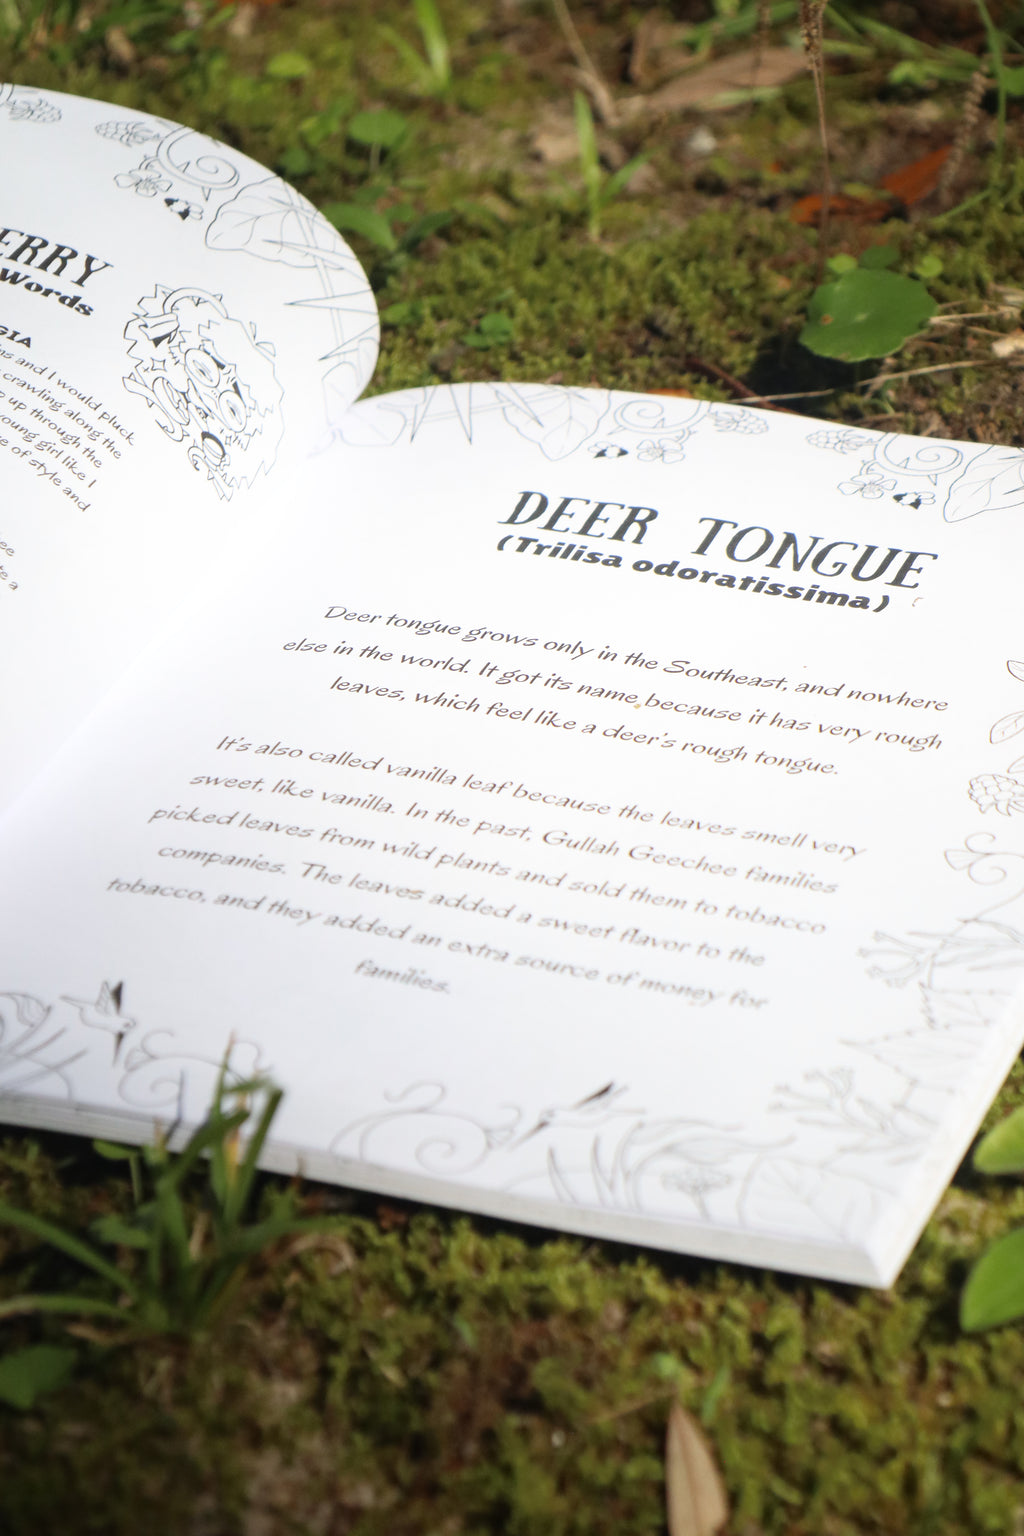 ERRY
Words
GIA
ns and I would pluck
crawling along the
p up through the
young girl like I
e of style and
ee
te a
DEER TONGUE
(Trilisa odoratissima)
Deer tongue grows only in the Southeast, and nowhere
else in the world. It got its name because it has very rough
leaves, which feel like a deer's rough tongue.
It's also called vanilla leaf because the leaves smell very
sweet, like vanilla. In the past, Gullah Geechee families
picked leaves from wild plants and sold them to tobacco
companies. The leaves added a sweet flavor to the
tobacco, and they added an extra source of money for
families.